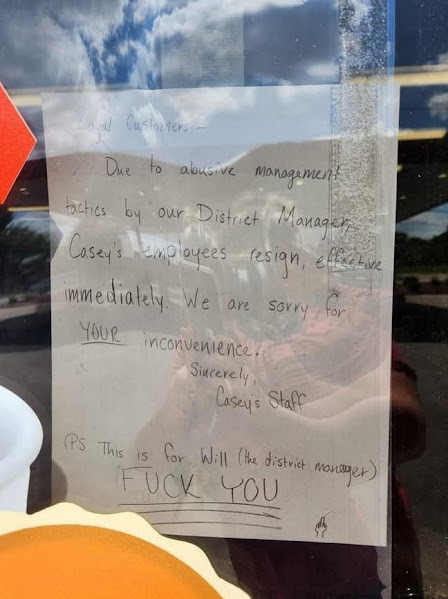 Loyal Customers –
Due to abusive management
tactics by our District Manager,
Casey's employees resign, effective
immediately. We are sorry for
YOUR inconvenience.
Sincerely,
Casey's Staff
(PS This is for Will (the district manager)
FUCK YOU